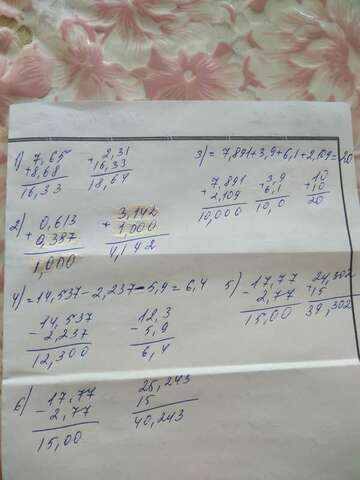 1) 7,65
+ 8,68
16,33
2,31
+ 16,33
18,64
3) = 7,891+3,9+6,1+2,109=20
+ 7,891
2,109
10,000
+ 3,9
6,1
10,0
10
+ 10
20
2) + 0,613
0,387
1,000
+ 3,142
1,000
4,142
4) = 14,537-2,237-5,9=6,4
- 14,537
2,237
12,300
- 12,3
5,9
6,4
5) - 17,77
2,77
15,00
24,302
+ 15
39,302
6) - 17,77
2,77
15,00
25,243
15
40,243